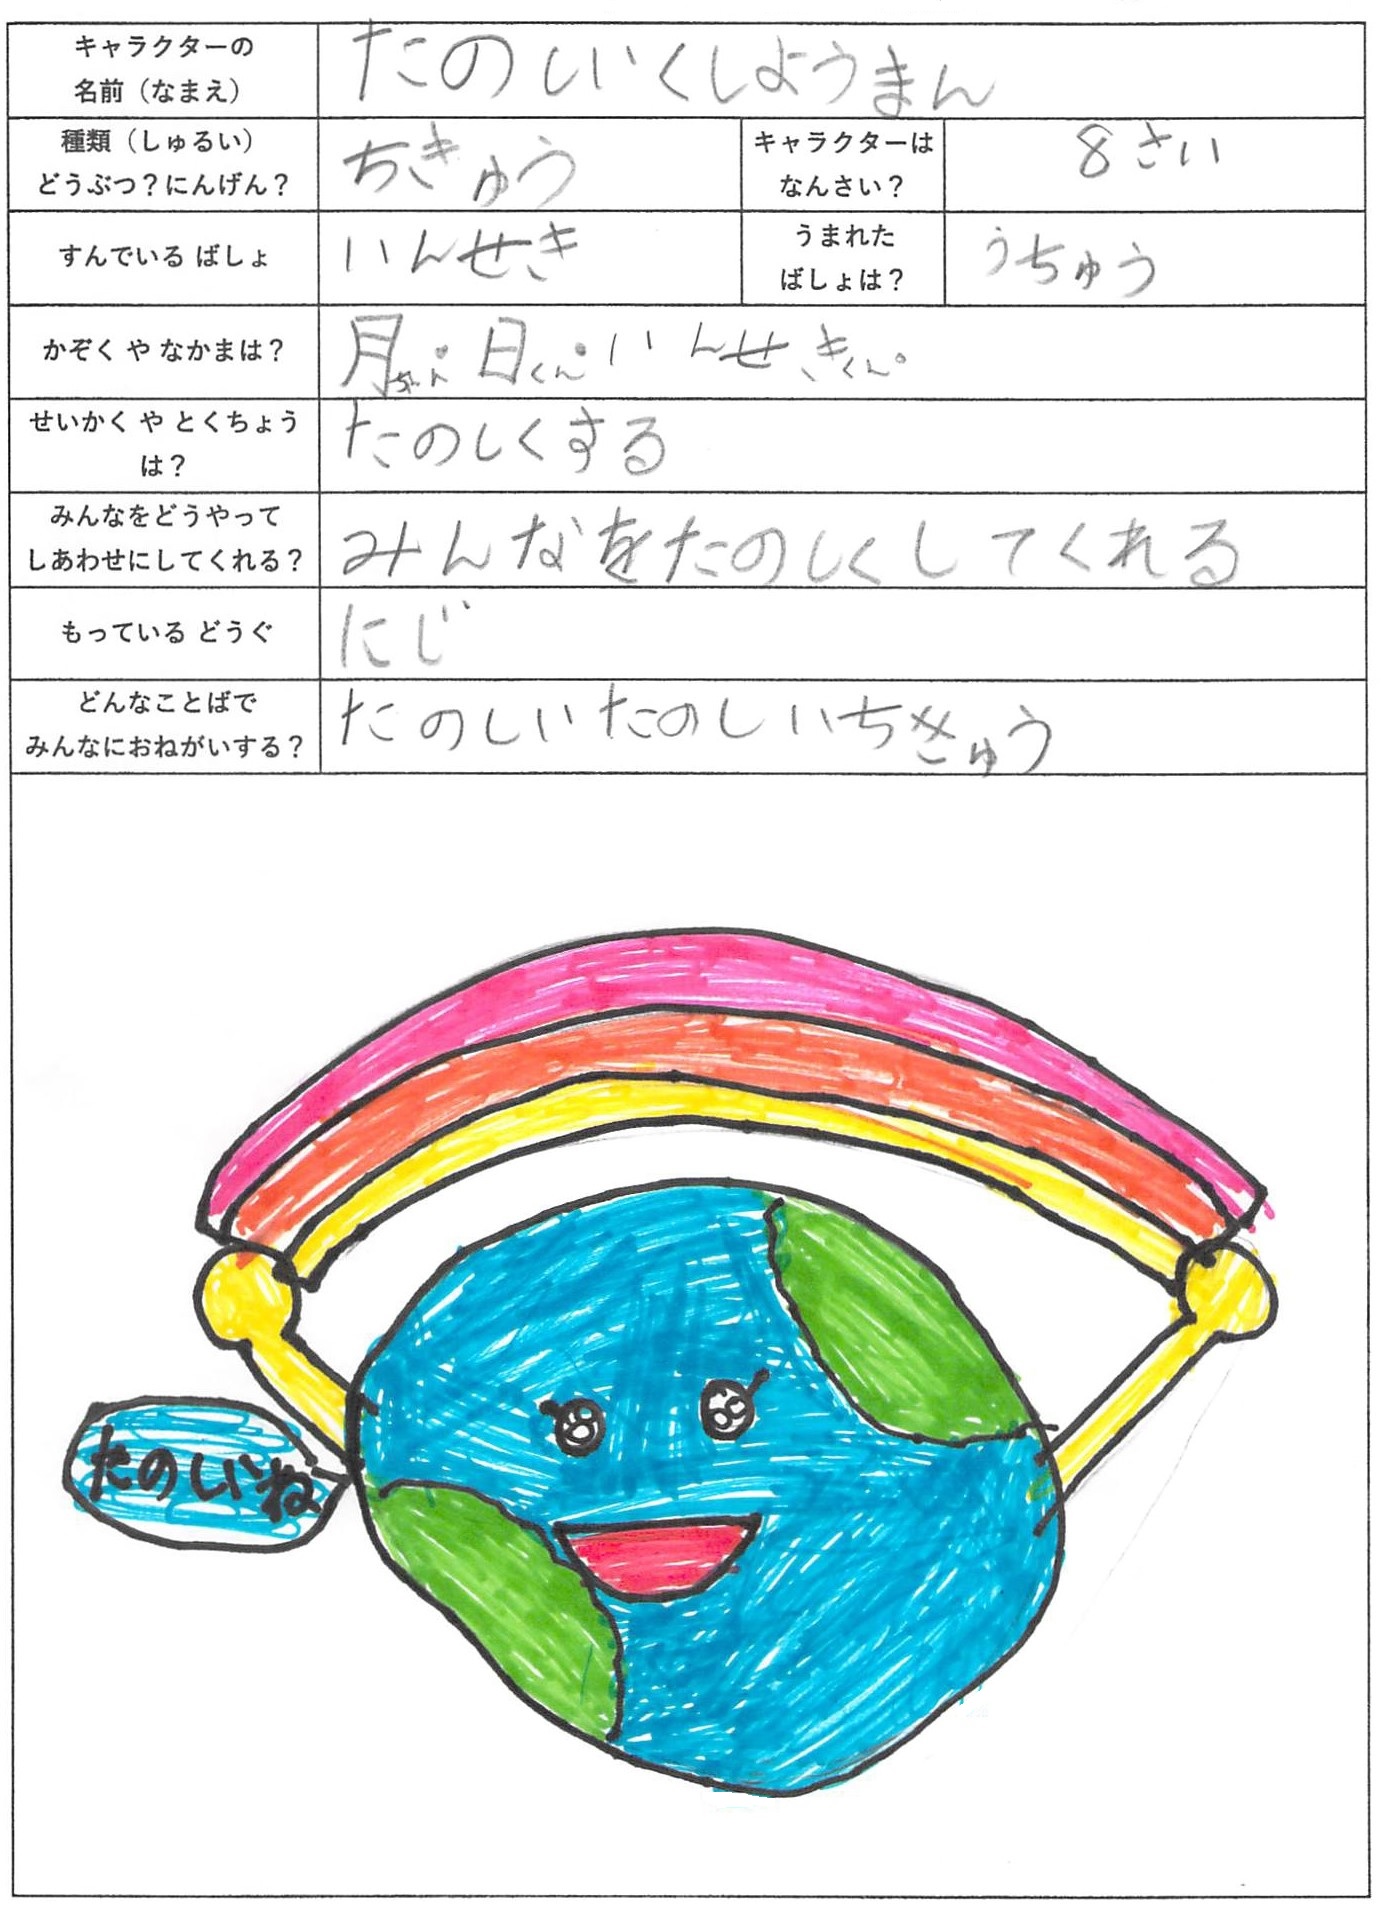 キャラクターの
名前（なまえ）
たのしいくしようまん
種類（しゅるい）
どうぶつ？にんげん？
ちきゅう
キャラクターは
なんさい？
8さい
すんでいる ばしょ
いんせき
うまれた
ばしょは？
うちゅう
かぞく や なかまは？
月ちゃん。日くん。いんせきくん。
せいかく や とくちょう
は？
たのしくする
みんなをどうやって
しあわせにしてくれる？
みんなをたのしくしてくれる
もっている どうぐ
にじ
どんなことばで
みんなにおねがいする？
たのしいたのしいちきゅう
たのしいね